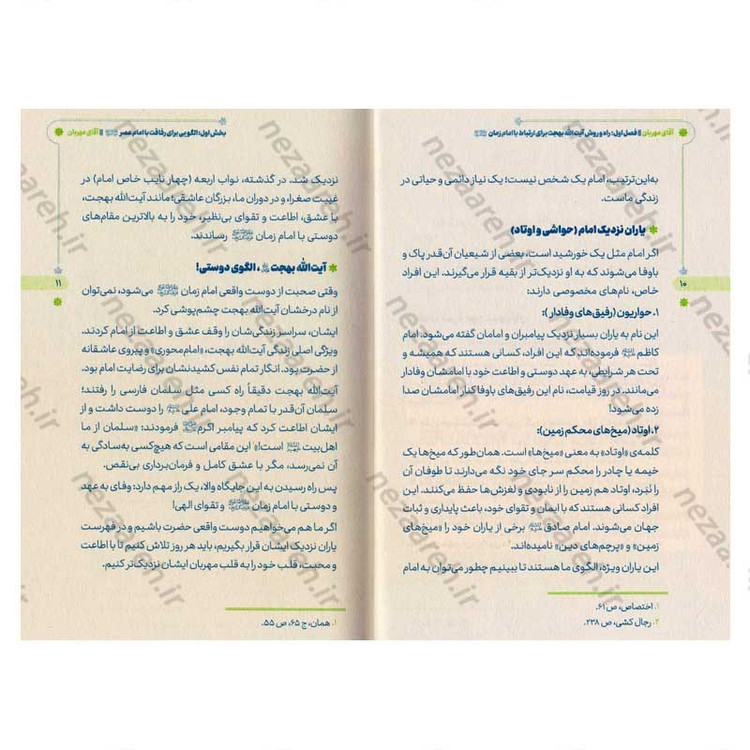 آقای مهربان || فصل اول: راه و روش آیت‌الله بهجت برای ارتباط با امام زمان
۱۰
به‌این‌ترتیب، امام یک شخص نیست؛ یک نیاز دائمی و حیاتی در
زندگی ماست.
یاران نزدیک امام (حواشی و اوتاد)
اگر امام مثل یک خورشید است، بعضی از شیعیان آن‌قدر پاک و
باوفا می‌شوند که به او نزدیک‌تر از بقیه قرار می‌گیرند. این افراد
خاص، نام‌های مخصوصی دارند:
۱. حواریون (رفیق‌های وفادار):
این نام به یاران بسیار نزدیک پیامبران و امامان گفته می‌شود. امام
کاظم فرموده‌اند که این افراد، کسانی هستند که همیشه و
تحت هر شرایطی، به عهد دوستی و اطاعت خود با امامشان وفادار
می‌مانند. در روز قیامت، نام این رفیق‌های باوفا کنار امامشان صدا
زده می‌شود!
۲. اوتاد (میخ‌های محکم زمین):
کلمه‌ی «اوتاد» به معنی «میخ‌ها» است. همان‌طور که میخ‌ها یک
خیمه یا چادر را محکم سر جای خود نگه می‌دارند تا طوفان آن
را نبرد، اوتاد هم زمین را از نابودی و لغزش‌ها حفظ می‌کنند. این
افراد کسانی هستند که با ایمان و تقوای خود، باعث پایداری و ثبات
جهان می‌شوند. امام صادق برخی از یاران خود را «میخ‌های
زمین» و «پرچم‌های دین» نامیده‌اند.
این یاران ویژه، الگوی ما هستند تا ببینیم چطور می‌توان به امام
۱. اختصاص، ص ۶۱.
۲. رجال کشی، ص ۲۳۸.
بخش اول: الگویی برای رفاقت با امام عصر || آقای مهربان
۱۱
نزدیک شد. در گذشته، نواب اربعه (چهار نایب خاص امام) در
غیبت صغرا، و در دوران ما، بزرگان عاشقی؛ مانند آیت‌الله بهجت،
با عشق، اطاعت و تقوای بی‌نظیر، خود را به بالاترین مقام‌های
دوستی با امام زمان رساندند.
آیت‌الله بهجت، الگوی دوستی!
وقتی صحبت از دوست واقعی امام زمان می‌شود، نمی‌توان
از نام درخشان آیت‌الله بهجت چشم‌پوشی کرد.
ایشان، سراسر زندگی‌شان را وقف عشق و اطاعت از امام کردند.
ویژگی اصلی زندگی آیت‌الله بهجت، «امام‌محوری» و پیروی عاشقانه
از حضرت بود. انگار تمام نفس کشیدنشان برای رضایت امام بود.
آیت‌الله بهجت دقیقاً راه کسی مثل سلمان فارسی را رفتند؛
سلمان آن‌قدر با تمام وجود، امام علی را دوست داشت و از
ایشان اطاعت کرد که پیامبر اکرم فرمودند: «سلمان از ما
اهل‌بیت است!» این مقامی است که هیچ‌کسی به‌سادگی به
آن نمی‌رسد، مگر با عشق کامل و فرمان‌برداری بی‌نقص.
پس راه رسیدن به این جایگاه والا، یک راز مهم دارد: وفای به عهد
و دوستی با امام زمان و تقوای الهی!
اگر ما هم می‌خواهیم دوست واقعی حضرت باشیم و در فهرست
یاران نزدیک ایشان قرار بگیریم، باید هر روز تلاش کنیم تا با اطاعت
و محبت، قلب خود را به قلب مهربان ایشان نزدیک‌تر کنیم.
۱. همان، ج ۶۵، ص ۵۵.
nezaareh.ir